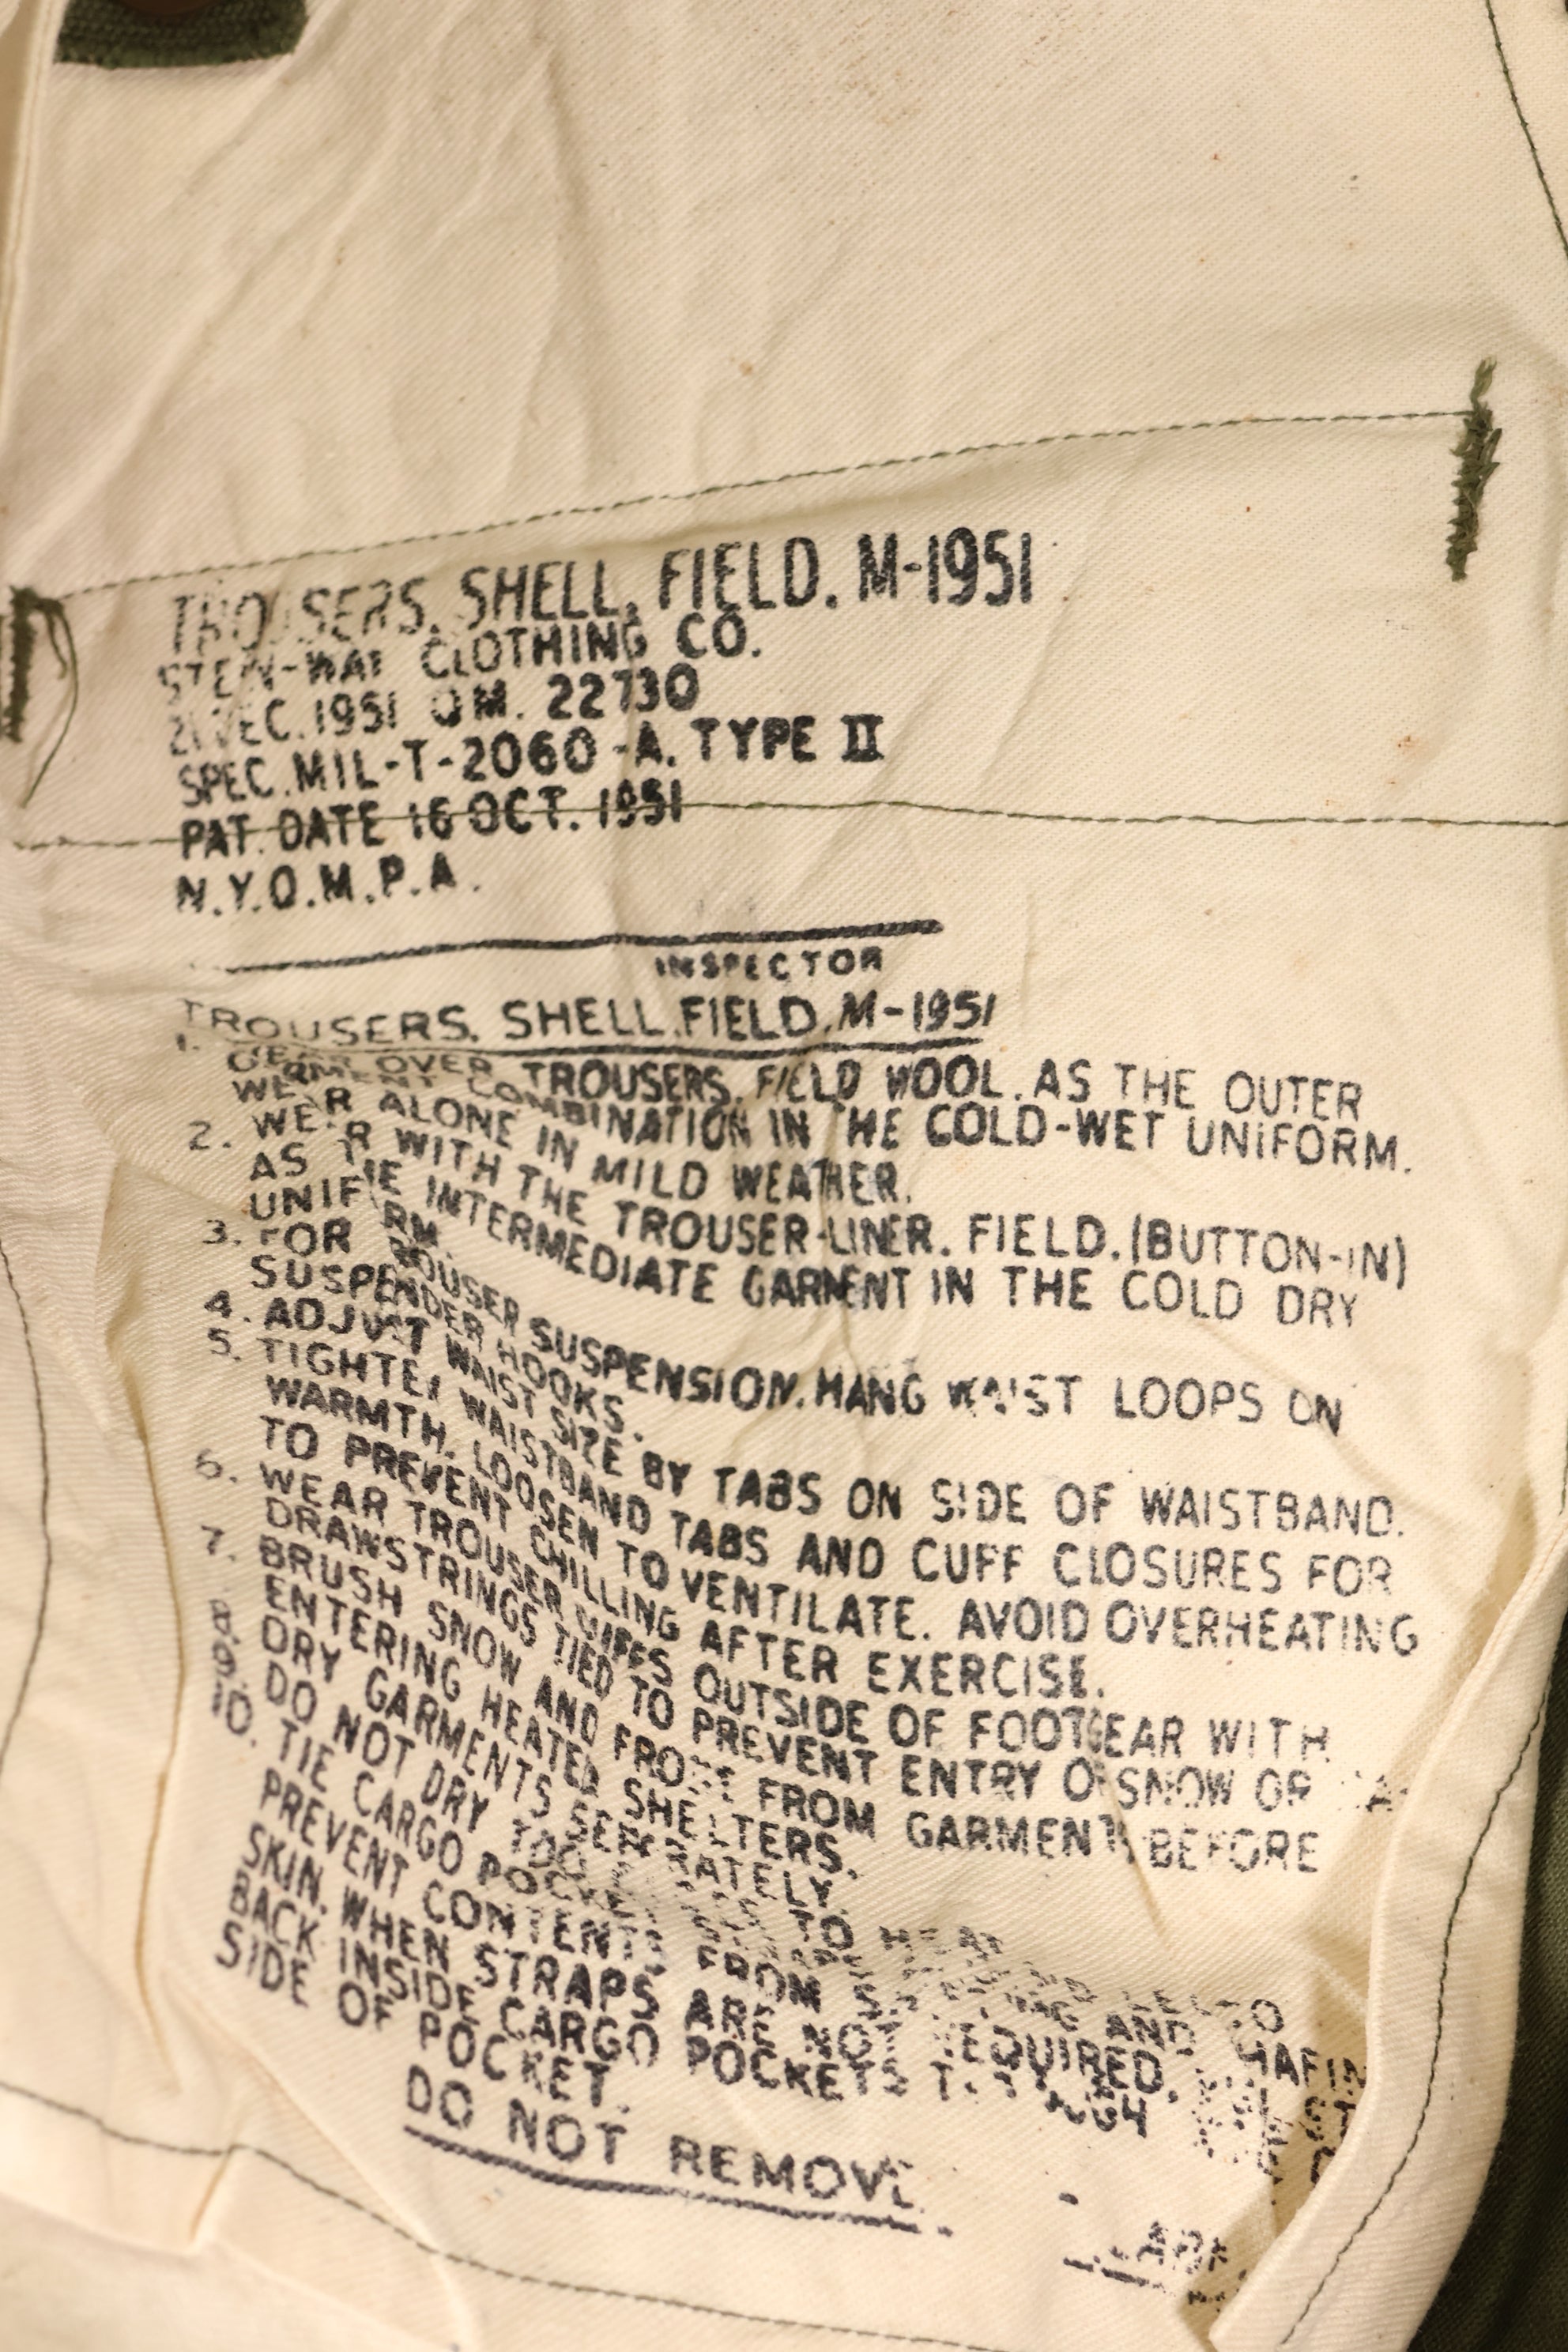 TROUSERS, SHELL, FIELD, M-1951
CLOTHING CO.
DEC. 1951 QM. 22730
SPEC. MIL-T-2060-A. TYPE II
PAT. DATE 16 OCT. 1951
N.Y.Q.M.P.A.
INSPECTOR
TROUSERS, SHELL, FIELD, M-1951
1. WEAR OVER TROUSERS, FIELD WOOL, AS THE OUTER
GARMENT COMBINATION IN THE COLD-WET UNIFORM.
WEAR ALONE IN MILD WEATHER.
2. WEAR WITH THE TROUSER-LINER, FIELD, (BUTTON-IN)
AS THE INTERMEDIATE GARMENT IN THE COLD DRY
UNIFORM.
3. FOR TROUSER SUSPENSION, HANG WAIST LOOPS ON
SUSPENDER HOOKS.
4. ADJUST WAIST SIZE BY TABS ON SIDE OF WAISTBAND.
5. TIGHTEN WAISTBAND TABS AND CUFF CLOSURES FOR
WARMTH. LOOSEN TO VENTILATE. AVOID OVERHEATING
TO PREVENT CHILLING AFTER EXERCISE.
6. WEAR TROUSER OUTSIDE OF FOOTGEAR WITH
DRAWSTRINGS TIED TO PREVENT ENTRY OF SNOW OR
7. BRUSH SNOW AND FROST FROM GARMENTS BEFORE
ENTERING HEATED SHELTERS.
8. DRY GARMENTS SEPARATELY.
9. DO NOT DRY TOO
10. TIE CARGO POCKETS AND
PREVENT CONTENTS FROM
SKIN. WHEN STRAPS ARE NOT REQUIRED,
BACK INSIDE CARGO POCKETS
SIDE OF POCKET.
DO NOT REMOVE